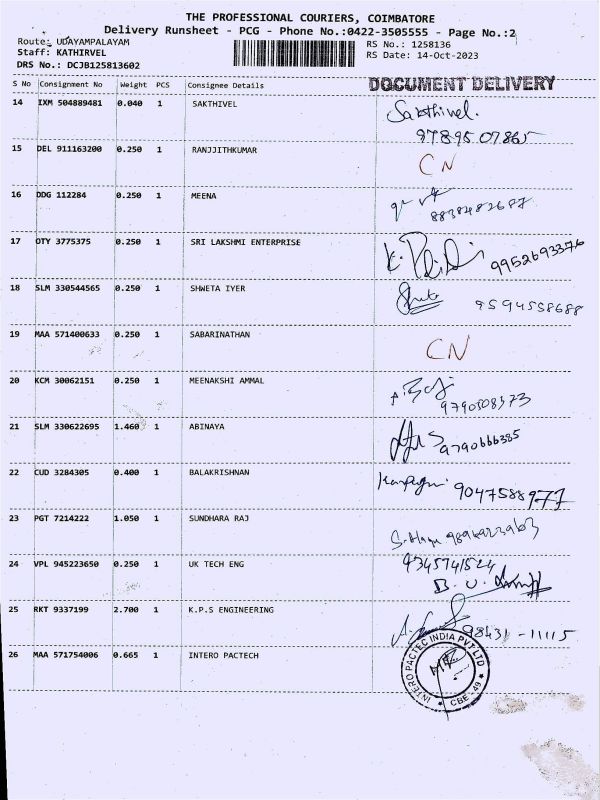 THE PROFESSIONAL COURIERS, COIMBATORE
Delivery Runsheet - PCG - Phone No.:0422-3505555 - Page No.:2
Route: UDAYAMPALAYAM
RS No.: 1258136
Staff: KATHIRVEL
RS Date: 14-Oct-2023
DRS No.: DCJB125813602
S No Consignment No Weight PCS Consignee Details DOCUMENT DELIVERY
14 IXM 504889481 0.040 1 SAKTHIVEL Sakthivel.
97895 07865
15 DEL 911163200 0.250 1 RANJJITHKUMAR CN
16 DDG 112284 0.250 1 MEENA
8838482687
17 OTY 3775375 0.250 1 SRI LAKSHMI ENTERPRISE 9952693376
18 SLM 330544565 0.250 1 SHWETA IYER 9594558688
19 MAA 571400633 0.250 1 SABARINATHAN CN
20 KCM 30062151 0.250 1 MEENAKSHI AMMAL
9790508573
21 SLM 330622695 1.460 1 ABINAYA 9790666385
22 CUD 3284305 0.400 1 BALAKRISHNAN 9047588977
23 PGT 7214222 1.050 1 SUNDHARA RAJ
24 VPL 945223650 0.250 1 UK TECH ENG 9345741524
25 RKT 9337199 2.700 1 K.P.S ENGINEERING 98431-11115
26 MAA 571754006 0.665 1 INTERO PACTECH
INTERO PACTEC INDIA PVT LTD
CBE - 49